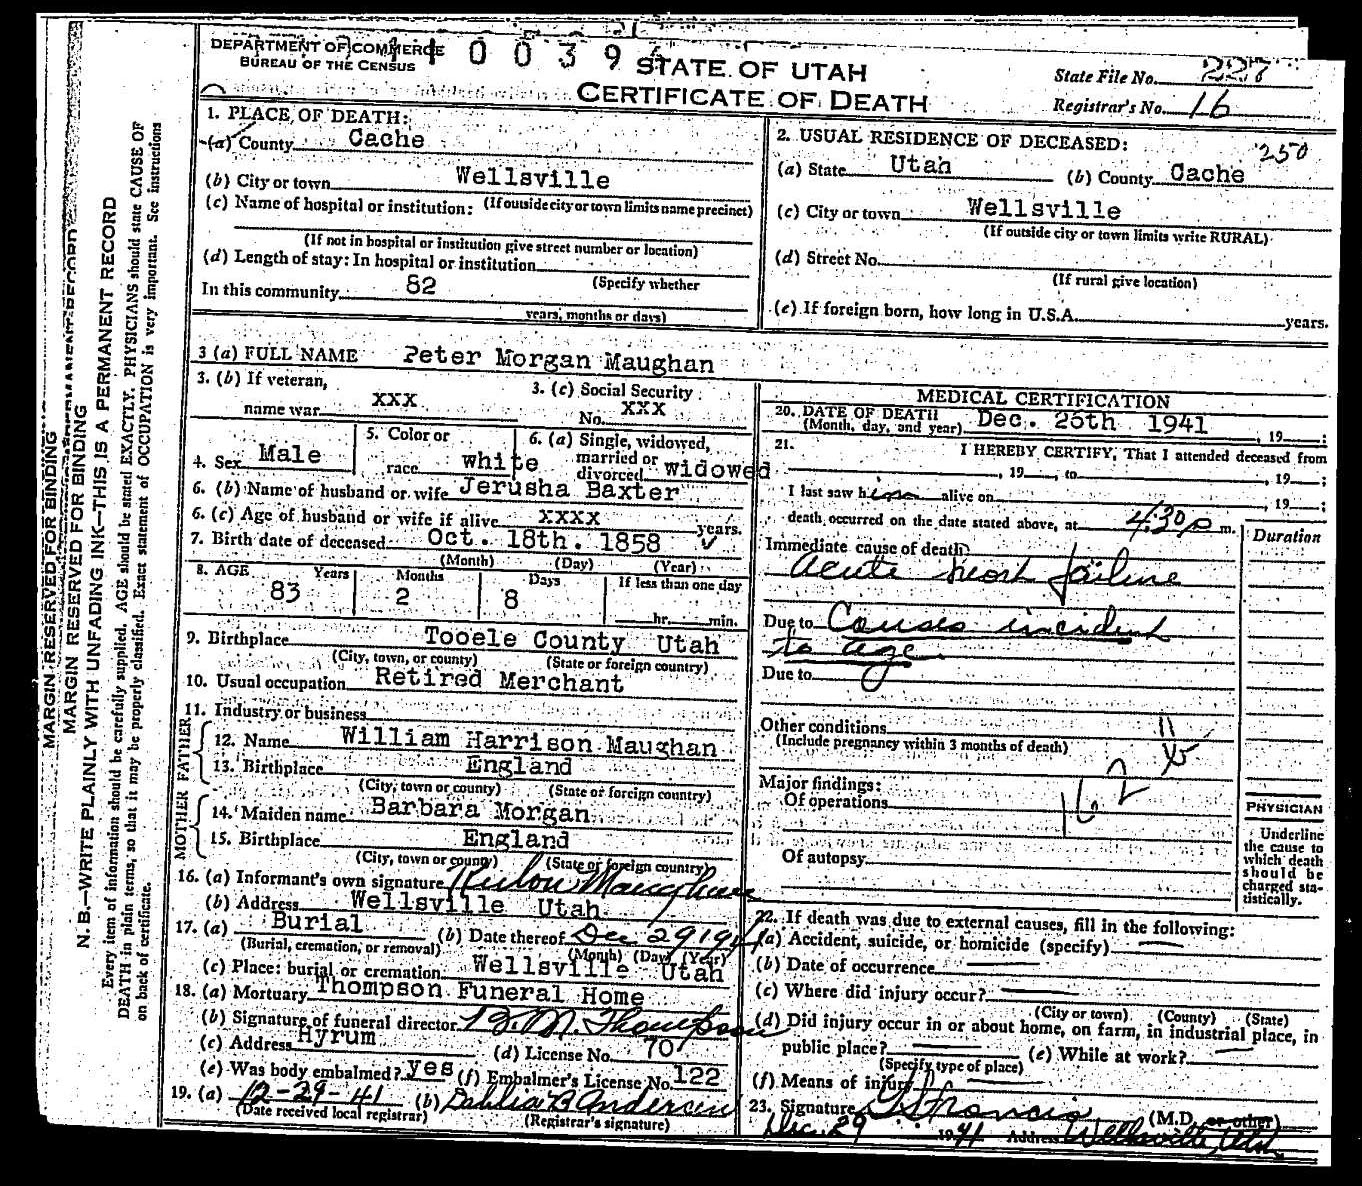 DEPARTMENT OF COMMERCE
BUREAU OF THE CENSUS
0 0 3 9
STATE OF UTAH
CERTIFICATE OF DEATH
State File No. 227
Registrar's No. 16
1. PLACE OF DEATH:
(a) County Cache
(b) City or town Wellsville
(If outside city or town limits name precinct)
(c) Name of hospital or institution:
(If not in hospital or institution give street number or location)
(d) Length of stay: In hospital or institution
(Specify whether
In this community 82
years, months or days)
2. USUAL RESIDENCE OF DECEASED:
250
(a) State Utah (b) County Cache
(c) City or town Wellsville
(If outside city or town limits write RURAL)
(d) Street No.
(If rural give location)
(e) If foreign born, how long in U.S.A. years.
3 (a) FULL NAME Peter Morgan Maughan
3. (b) If veteran,
name war XXX
3. (c) Social Security
No. XXX
4. Sex Male
5. Color or
race white
6. (a) Single, widowed,
married or
divorced Widowed
6. (b) Name of husband or wife Jerusha Baxter
6. (c) Age of husband or wife if alive XXXX years.
7. Birth date of deceased Oct. 18th. 1858
(Month) (Day) (Year)
8. AGE Years Months Days If less than one day
83 2 8 hr. min.
9. Birthplace Tooele County Utah
(City, town, or county) (State or foreign country)
10. Usual occupation Retired Merchant
11. Industry or business
FATHER
12. Name William Harrison Maughan
13. Birthplace England
(City, town or county) (State or foreign country)
MOTHER
14. Maiden name Barbara Morgan
15. Birthplace England
(City, town or county) (State or foreign country)
16. (a) Informant's own signature Rulon Maughan
(b) Address Wellsville Utah
17. (a) Burial (b) Date thereof Dec 29 1941
(Burial, cremation, or removal) (Month) (Day) (Year)
(c) Place: burial or cremation Wellsville Utah
18. (a) Mortuary Thompson Funeral Home
(b) Signature of funeral director B. M. Thompson
(c) Address Hyrum (d) License No. 70
(e) Was body embalmed? yes (f) Embalmer's License No. 122
19. (a) 12-29-41 (b) Dahlia B Andersen
(Date received local registrar) (Registrar's signature)
MEDICAL CERTIFICATION
20. DATE OF DEATH
(Month, day, and year) Dec. 25th 1941, 19 ;
21. I HEREBY CERTIFY, That I attended deceased from
, 19 , to , 19 ;
I last saw him alive on , 19 ;
death occurred on the date stated above, at 4:30 p m.
Duration
Immediate cause of death
Acute heart failure
Due to Causes incident
to age
Due to
Other conditions
(Include pregnancy within 3 months of death)
Major findings:
Of operations
162
Of autopsy
PHYSICIAN
Underline
the cause to
which death
should be
charged sta-
tistically.
22. If death was due to external causes, fill in the following:
(a) Accident, suicide, or homicide (specify)
(b) Date of occurrence
(c) Where did injury occur?
(City or town) (County) (State)
(d) Did injury occur in or about home, on farm, in industrial place, in
public place? (e) While at work?
(Specify type of place)
(f) Means of injury
23. Signature Francis (M.D. or other)
Dec. 29 1941 Address Wellsville, Utah
MARGIN RESERVED FOR BINDING
MARGIN RESERVED FOR BINDING
N. B.—WRITE PLAINLY WITH UNFADING INK—THIS IS A PERMANENT RECORD
Every item of information should be carefully supplied. AGE should be stated EXACTLY. PHYSICIANS should state CAUSE OF
DEATH in plain terms, so that it may be properly classified. Exact statement of OCCUPATION is very important. See instructions
on back of certificate.